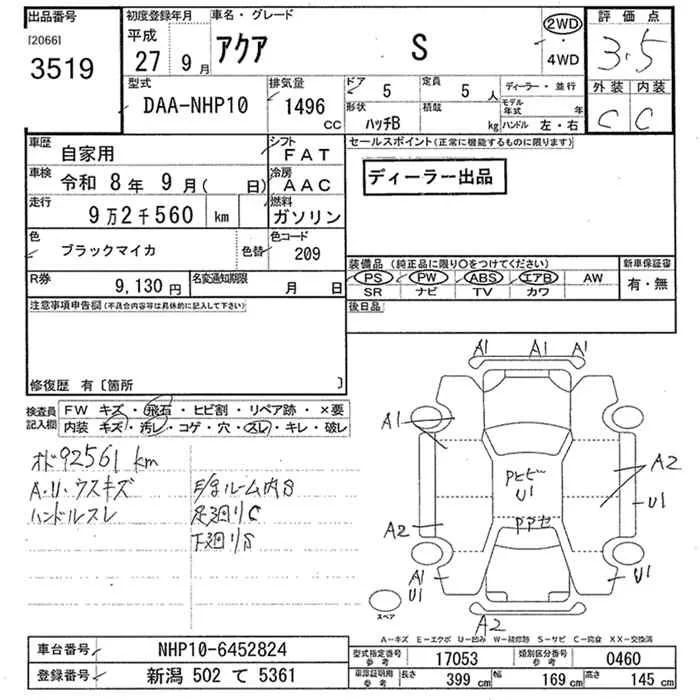 出品番号 初度登録年月 車名・グレード 2WD 評価点
[2066] 平成
3519 27 9月 アクア S ・ 4WD 3.5
型式 排気量 ドア 定員 ディーラー・並行 外装 内装
DAA-NHP10 1496 CC 5 5人 モデル年式 年 C C
形状 積載
ハッチB kg ハンドル 左・右
車歴 自家用 シフト FAT セールスポイント(正常に機能するものに限ります)
車検 令和 8年 9月( 日) 冷房 AAC ディーラー出品
走行 9万2千560 km 燃料 ガソリン
色 ブラックマイカ 色替 色コード 209
装備品(純正品に限り○をつけてください) 新車保証書
R券 9,130円 名変通知期限 月 日 PS PW ABS エアB AW 有・無
SR ナビ TV カワ
注意事項申告欄(不具合内容等は具体的に記入して下さい) 後日品
修復歴 有〔箇所 〕
検査員記入欄 FW キズ・飛石・ヒビ割・リペア跡・×要
内装 キズ・汚レ・コゲ・穴・スレ・キレ・破レ
オド92561km
A.U.ウスキズ ルーム内S
ハンドルスレ 足廻りC
下廻りS
A1 A1 A1
A1
A2
U1
U1
A2
A1
U1
U1
A2
スペア
A−キズ E−エクボ U−凹み W−補修跡 S−サビ C−腐食 XX−交換済
車台番号 NHP10-6452824 型式指定番号 参考 17053 類別区分番号 参考 0460
登録番号 新潟 502 て 5361 車庫証明用 参考 長さ 399 cm 幅 169 cm 高さ 145 cm